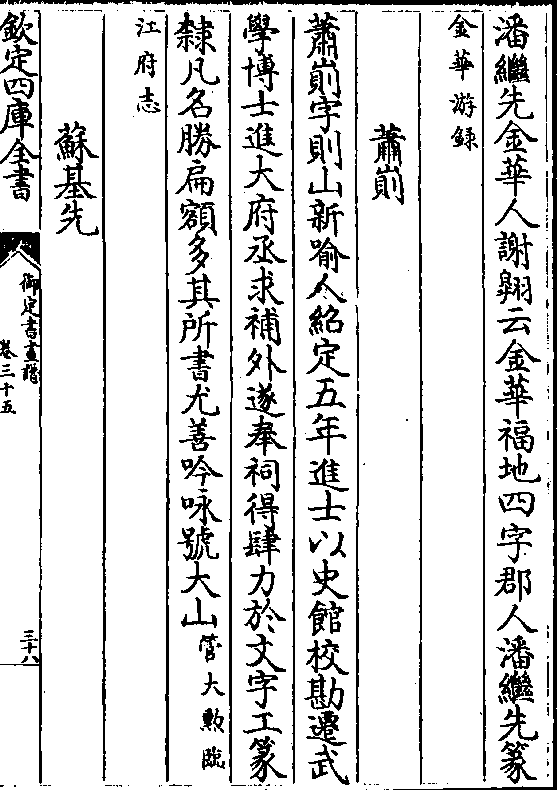 潘繼先金華人謝翱云金華福地四字郡人潘繼先篆
金華游録
蕭崱
蕭崱字則山新喻人紹定五年進士以史館校勘遷武
學博士進大府丞求補外遂奉祠得肆力於文字工篆
隸凡名勝扁額多其所書尤善吟咏號大山管大勲臨
江府志
蘇基先
欽定四庫全書
御定書畫譜
卷三十五
三十八